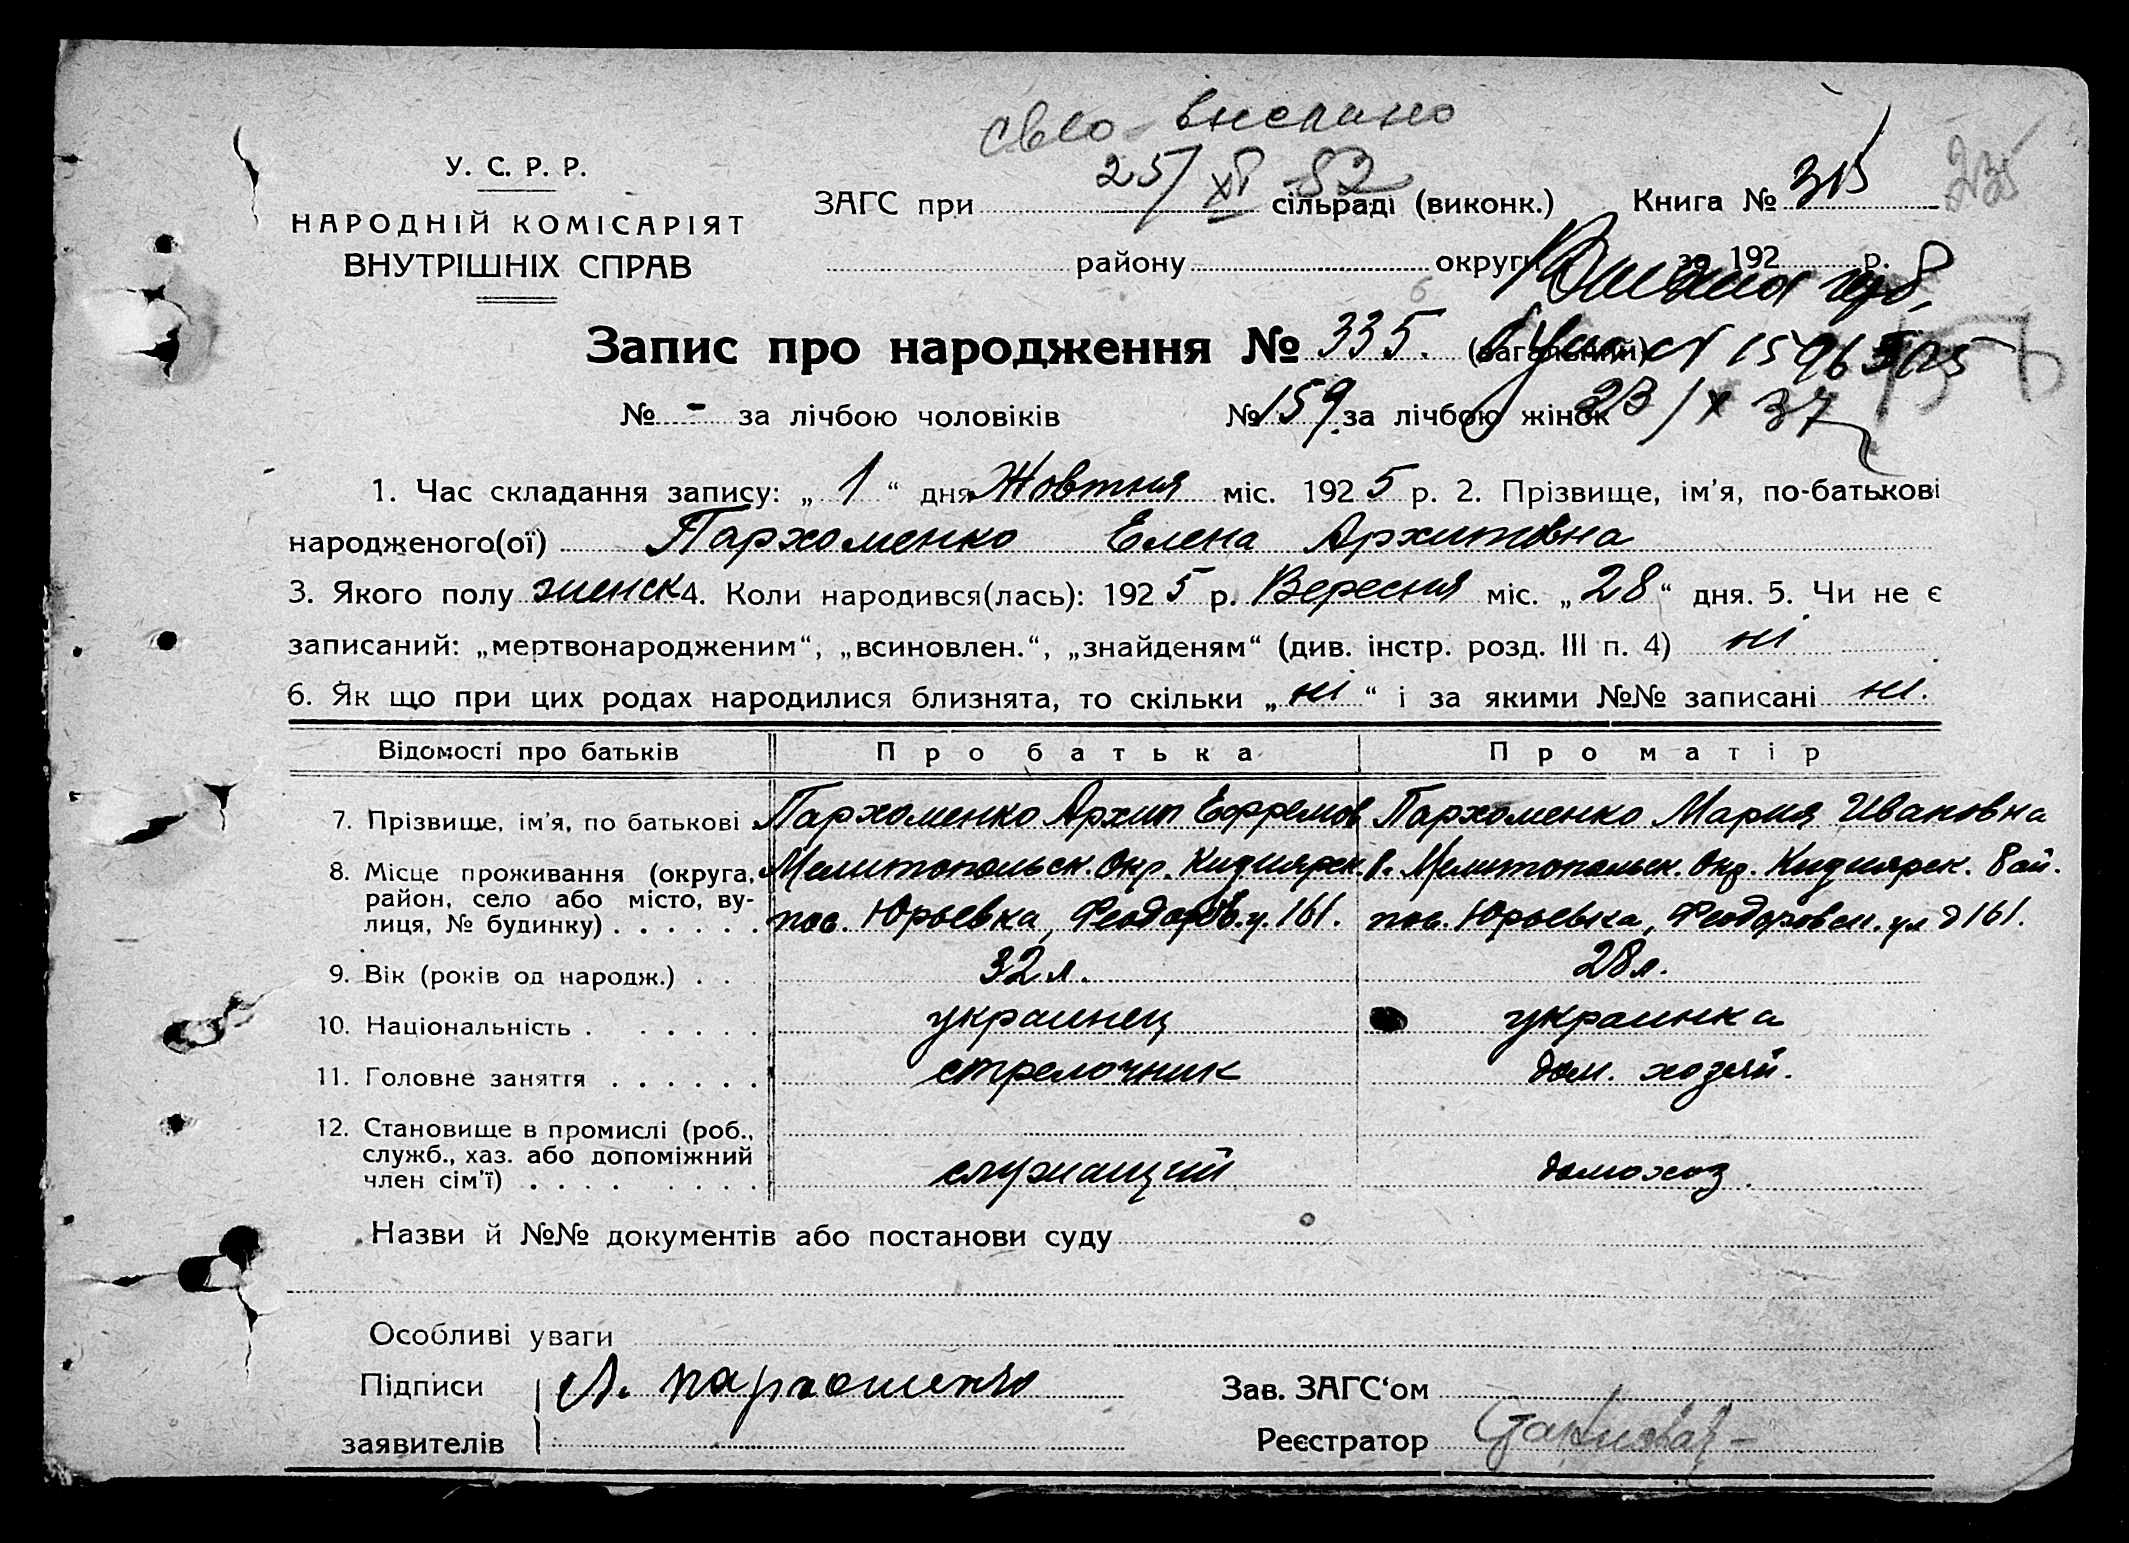 свго виписано
25/XI 82
У. С. Р. Р.
НАРОДНІЙ КОМІСАРІЯТ
ВНУТРІШНІХ СПРАВ
ЗАГС при сільраді (виконк.) Книга № 315 235
району округи за 192 р.
Запис про народження № 335. (загальний)
1596505
№ - за лічбою чоловіків № 159 за лічбою жінок 23/X 37
1. Час складання запису: „ 1 “ дня Жовтня міс. 192 5 р. 2. Прізвище, ім'я, по-батькові
народженого(ої) Пархоменко Елена Архиповна
3. Якого полу женск 4. Коли народився(лась): 192 5 р. Вересня міс. „ 28 “ дня. 5. Чи не є
записаний: „мертвонародженим“, „всиновлен.“, „знайденям“ (див. інстр. розд. III п. 4) ні
6. Як що при цих родах народилися близнята, то скільки „ ні “ і за якими №№ записані ні.
Відомості про батьків Про батька Про матір
7. Прізвище, ім'я, по батькові Пархоменко Архип Ефремов Пархоменко Мария Ивановна
8. Місце проживання (округа, Мелитопольск. Окр. Кидиярск. р. Мелитопольск. Окр. Кидиярск. Рай.
район, село або місто, ву-
лиця, № будинку) . . . . . . пос. Юрьевка, Феодоров. у. 161. пос. Юрьевка, Феодоровск. ул д 161.
9. Вік (років од народж.) . . 32 л. 28 л.
10. Національність . . . . . . украинец украинка
11. Головне заняття . . . . . . стрелочник дом. хозяй.
12. Становище в промислі (роб.,
служб., хаз. або допоміжний
член сім'ї) . . . . . . . . служащий домохоз.
Назви й №№ документів або постанови суду
Особливі уваги
Підписи А. Пархоменко Зав. ЗАГС‘ом
заявителів Реєстратор